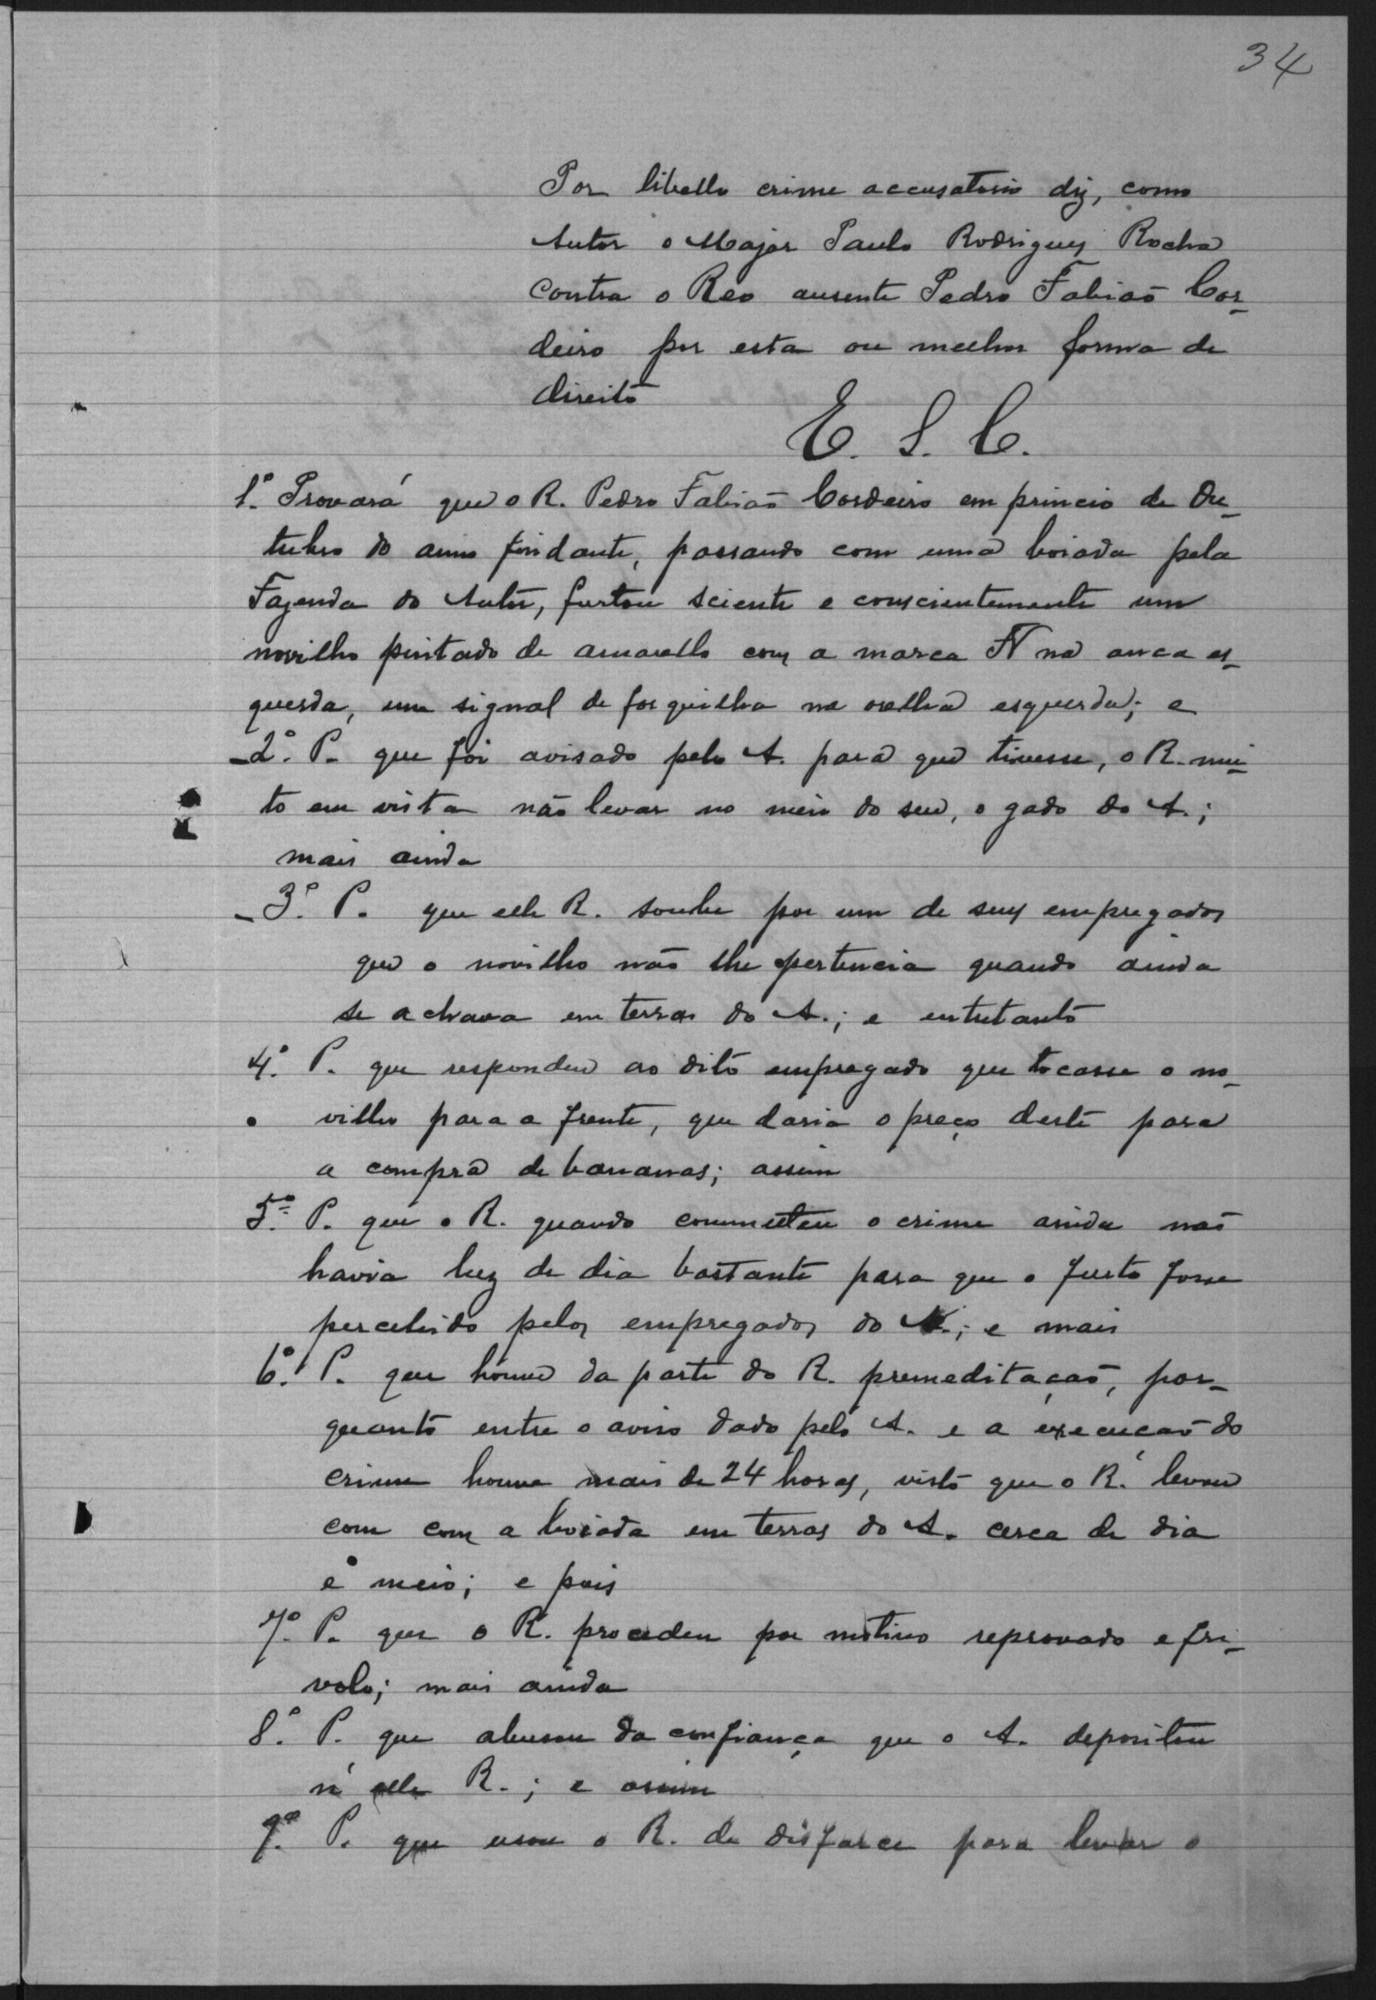 34
Por libello crime accusatorio diz, como
Autor o Major Paulo Rodrigues Rocha
contra o Reo ausente Pedro Fabião Cor-
deiro por esta ou melhor forma de
direito
E. S. C.
1º. Provará que o R. Pedro Fabião Cordeiro em princio de Ou-
tubro do anno findante, passando com uma boiada pela
Fazenda do Autor, furtou sciente e conscientemente um
novilho pintado de amarello com a marca FN na anca es-
querda, um signal de forquilha na orelha esquerda; e
2º. P. que foi avisado pelo A. para que tivesse, o R. mui-
to em vista não levar no meio do seu, o gado do A.;
mais ainda
3º. P. que elle R. soube por um de seus empregados
que o novilho não lhe pertencia quando ainda
se achava em terras do A.; e entretanto
4º. P. que respondeu ao dito empregado que tocasse o no-
vilho para a frente, que daria o preço deste para
a compra de bananas; assim
5º. P. que o R. quando commetteu o crime ainda não
havia luz de dia bastante para que o furto fosse
percebido pelos empregados do A.; e mais
6º. P. que houve da parte do R. premeditação, por-
quanto entre o aviso dado pelo A. e a execução do
crime houve mais de 24 horas, visto que o R. levou
com com a boiada em terras do A. cerca de dia
e meio; e pois
7º. P. que o R. procedeu por motivo reprovado e fri-
volo; mais ainda
8º. P. que abusou da confiança que o A. depositou
n'elle R.; e assim
9º. P. que usou o R. de disfarce para levar o